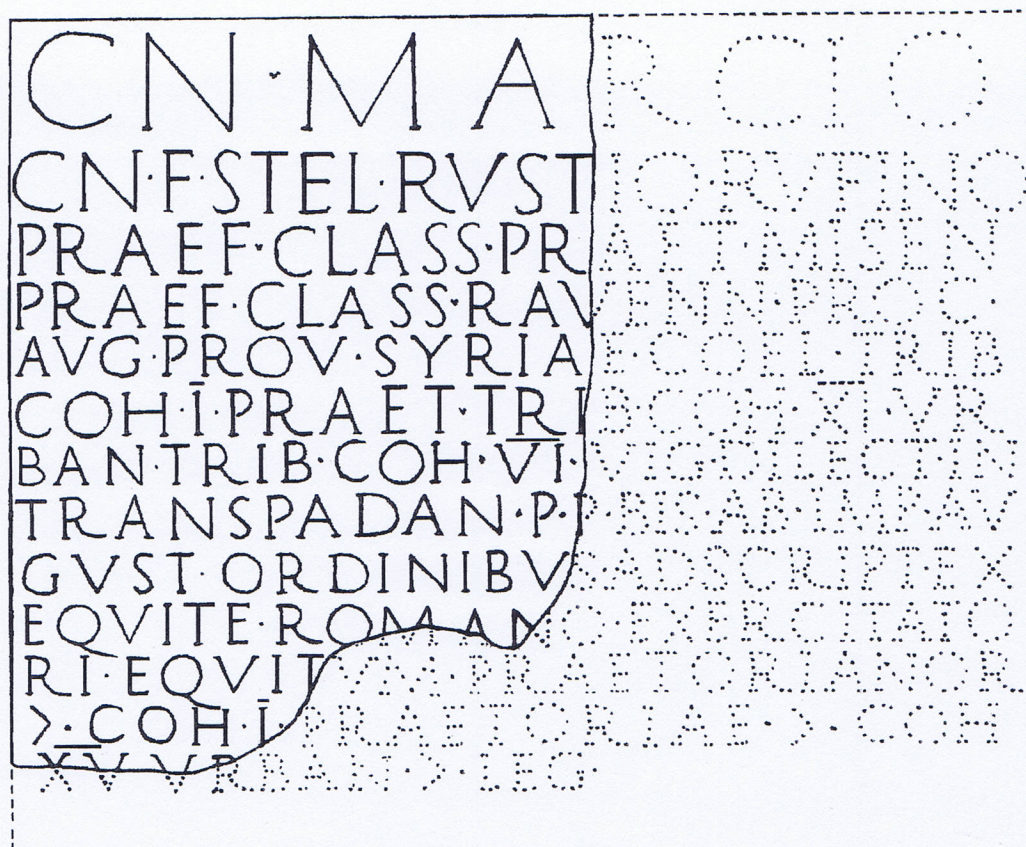 CN · MARCIO
CN·F·STEL·RVSTIO·RVFINO
PRAEF·CLASS·PRAET·MISEN
PRAEF·CLASS·RAVENN·PROC·
AVG·PROV·SYRIAE·COEL·TRIB
COH·Ī·PRAET·TRIB·COH·X̅I̅·VR
BAN·TRIB·COH·V̅I̅·VIG·DILECT·IN
TRANSPADAN·P·P·BIS·AB·IMP·AV
GVST·ORDINIBVS·ADSCRIPT·EX
EQVITE·ROMANO·EXERCITATO
RI·EQVIT·CA·PRAETORIANOR
>·COH·Ī·PRAETORIAE·>·COH
X̅V̅·VRBAN·>·LEG